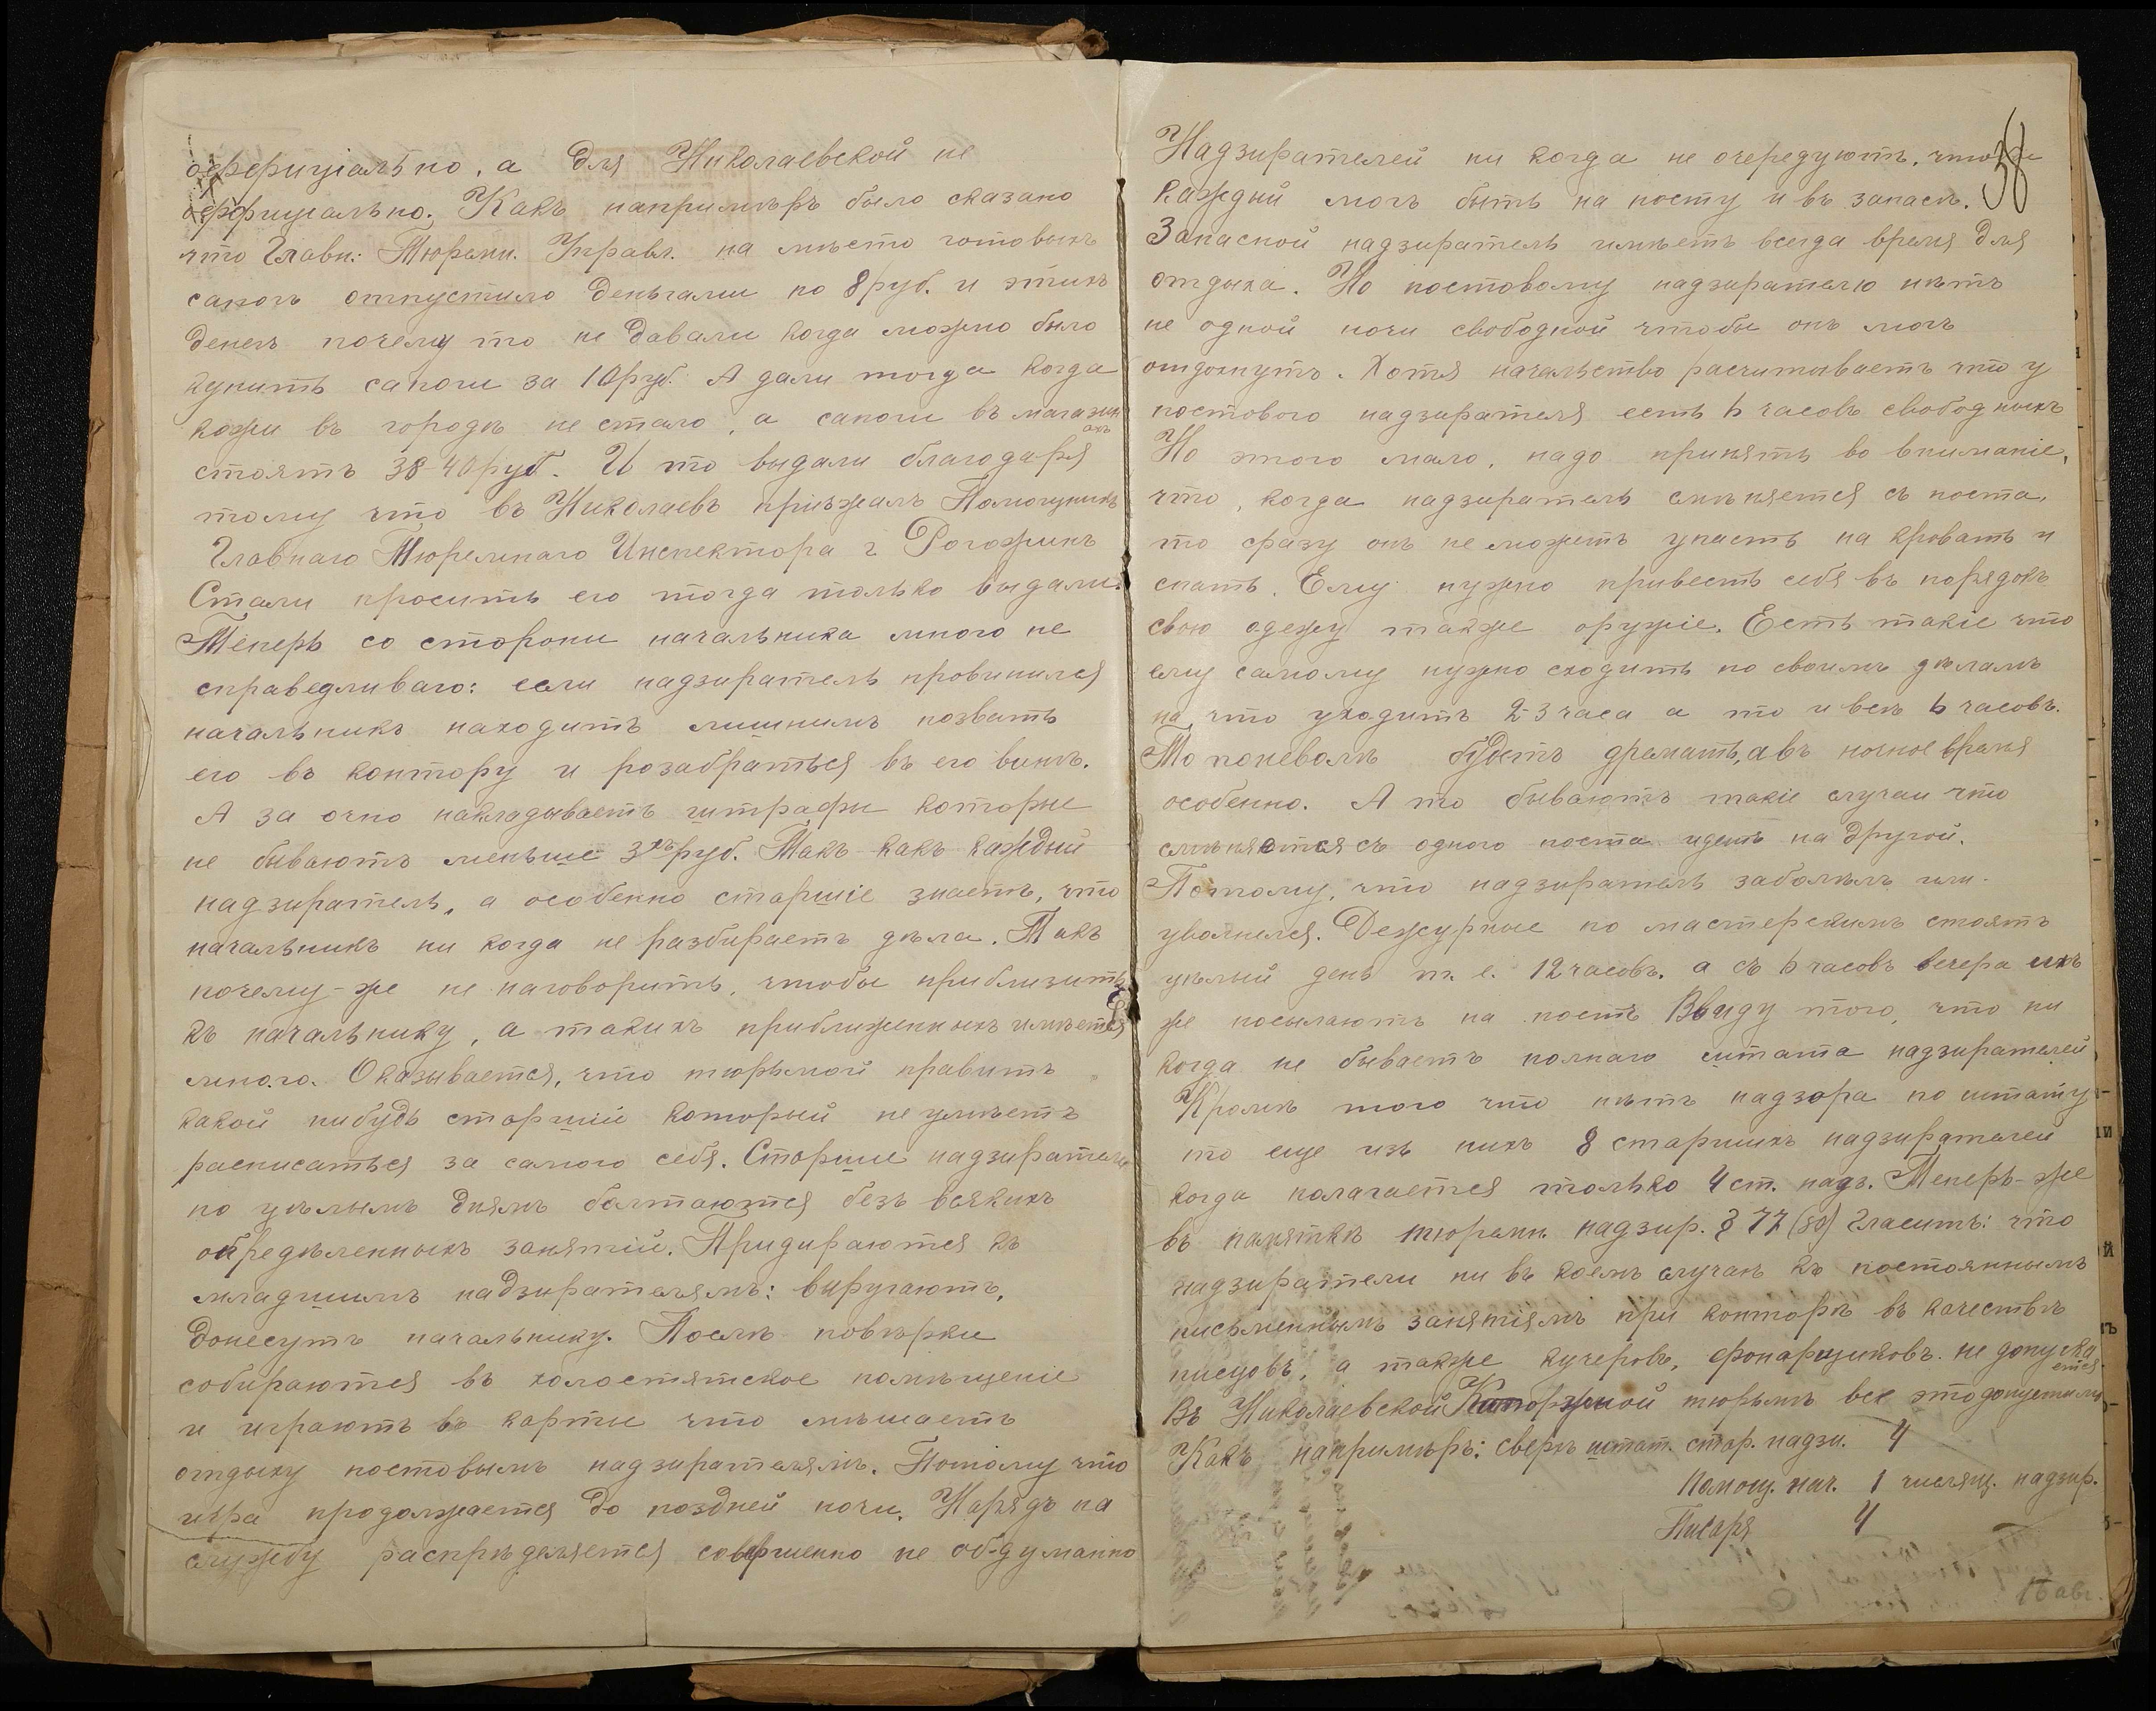 оффиціально, а для Николаевской не
оффиціально. Какъ напримѣръ было сказано
что Главн: Тюремн. Управл. на мѣсто готовыхъ
сапогъ отпустило деньгами по 8 руб. и этихъ
денегъ почему то не давали когда можно было
купить сапоги за 10 руб. А дали тогда когда
кожи въ городѣ не стало, а сапоги въ магазин
ахъ
стоятъ 38-40 руб. И то выдали благодаря
тому что въ Николаевъ пріѣзжалъ Помощникъ
Главнаго Тюремнаго Инспектора г Рогожинъ
Стали просить его тогда только выдали.
Теперь со стороны начальника много не
справедливаго: если надзиратель провинился
начальникъ находитъ лишнимъ позвать
его въ контору и розабраться въ его винѣ.
А за очно накладываетъ штрафы которые
не бываютъ меньше 3хъ руб. Такъ-какъ каждый
надзиратель, а особенно старшіе знаетъ, что
начальникъ ни когда не разбираетъ дѣла. Такъ
почему-же не наговорить, чтобы приблизить
ся
къ начальнику, а такихъ приближенныхъ имѣется
много. Оказывается, что тюрьмой правитъ
какой нибудь старшій который не умѣетъ
расписаться за самого себя. Старшие надзиратели
по цѣлымъ днямъ болтаются безъ всякихъ
опредѣленныхъ занятій. Придираются къ
младшимъ надзирателямъ: выругаютъ,
донесутъ начальнику. Послѣ повѣрки
собираются въ холостятское помѣщеніе
и играютъ въ карты что мѣшаетъ
отдыху постовымъ надзирателямъ. Потому что
игра продолжается до поздней ночи. Нарядъ на
службу распрѣделяется совершенно не об-думанно
38
Надзирателей ни когда не очередуютъ, чтобы
каждый могъ быть на посту и въ запасѣ.
Запасной надзиратель имѣетъ всегда время для
отдыха. Но постовому надзирателю нѣтъ
не одной ночи свободной чтобы онъ могъ
отдохнуть. Хотя начальство расчитываетъ что у
постового надзирателя есть 6 часовъ свободныхъ
Но этого мало, надо принять во вниманіе,
что, когда надзиратель смѣняется съ поста,
то сразу онъ не можетъ упасть на кровать и
спать. Ему нужно привесть себя въ порядокъ
свою одежу также оружіе. Есть такіе что
ему самому нужно сходить по своимъ дѣламъ
на что уходитъ 2-3 часа а то и всѣ 6 часовъ.
То поневолѣ будетъ дремать, а въ ночное время
особенно. А то бываютъ такіе случаи что
смѣняется съ одного поста идетъ на другой.
Потому, что надзиратель заболѣлъ или-
уволнелся. Дежурные по мастерскимъ стоятъ
цѣлый день т. е. 12 часовъ. а съ 6 часовъ вечера ихъ
же посылаютъ на постъ Ввиду того, что ни
когда не бываетъ полнаго штата надзирателей
Кромѣ того что нѣтъ надзора по штату
то еще изъ нихъ 8 старшихъ надзирателей
когда полагается только 4 ст. надз. Теперь-же
въ памяткѣ тюремн. надзир. § 77 (80) Гласитъ: что
надзиратели ни въ коемъ случаѣ къ постояннымъ
письменнымъ занятіямъ при конторѣ въ качествѣ
писцовъ, а также кучеровъ, фонарщиковъ не допуска
ется
Въ Николаевской Каторжной тюрьмѣ все это допустили
Какъ напримѣръ: сверхъ штат. стар. надзи. 4
Помощ. нач. 1 числящ. надзир.
Писаря 4
16 авг.